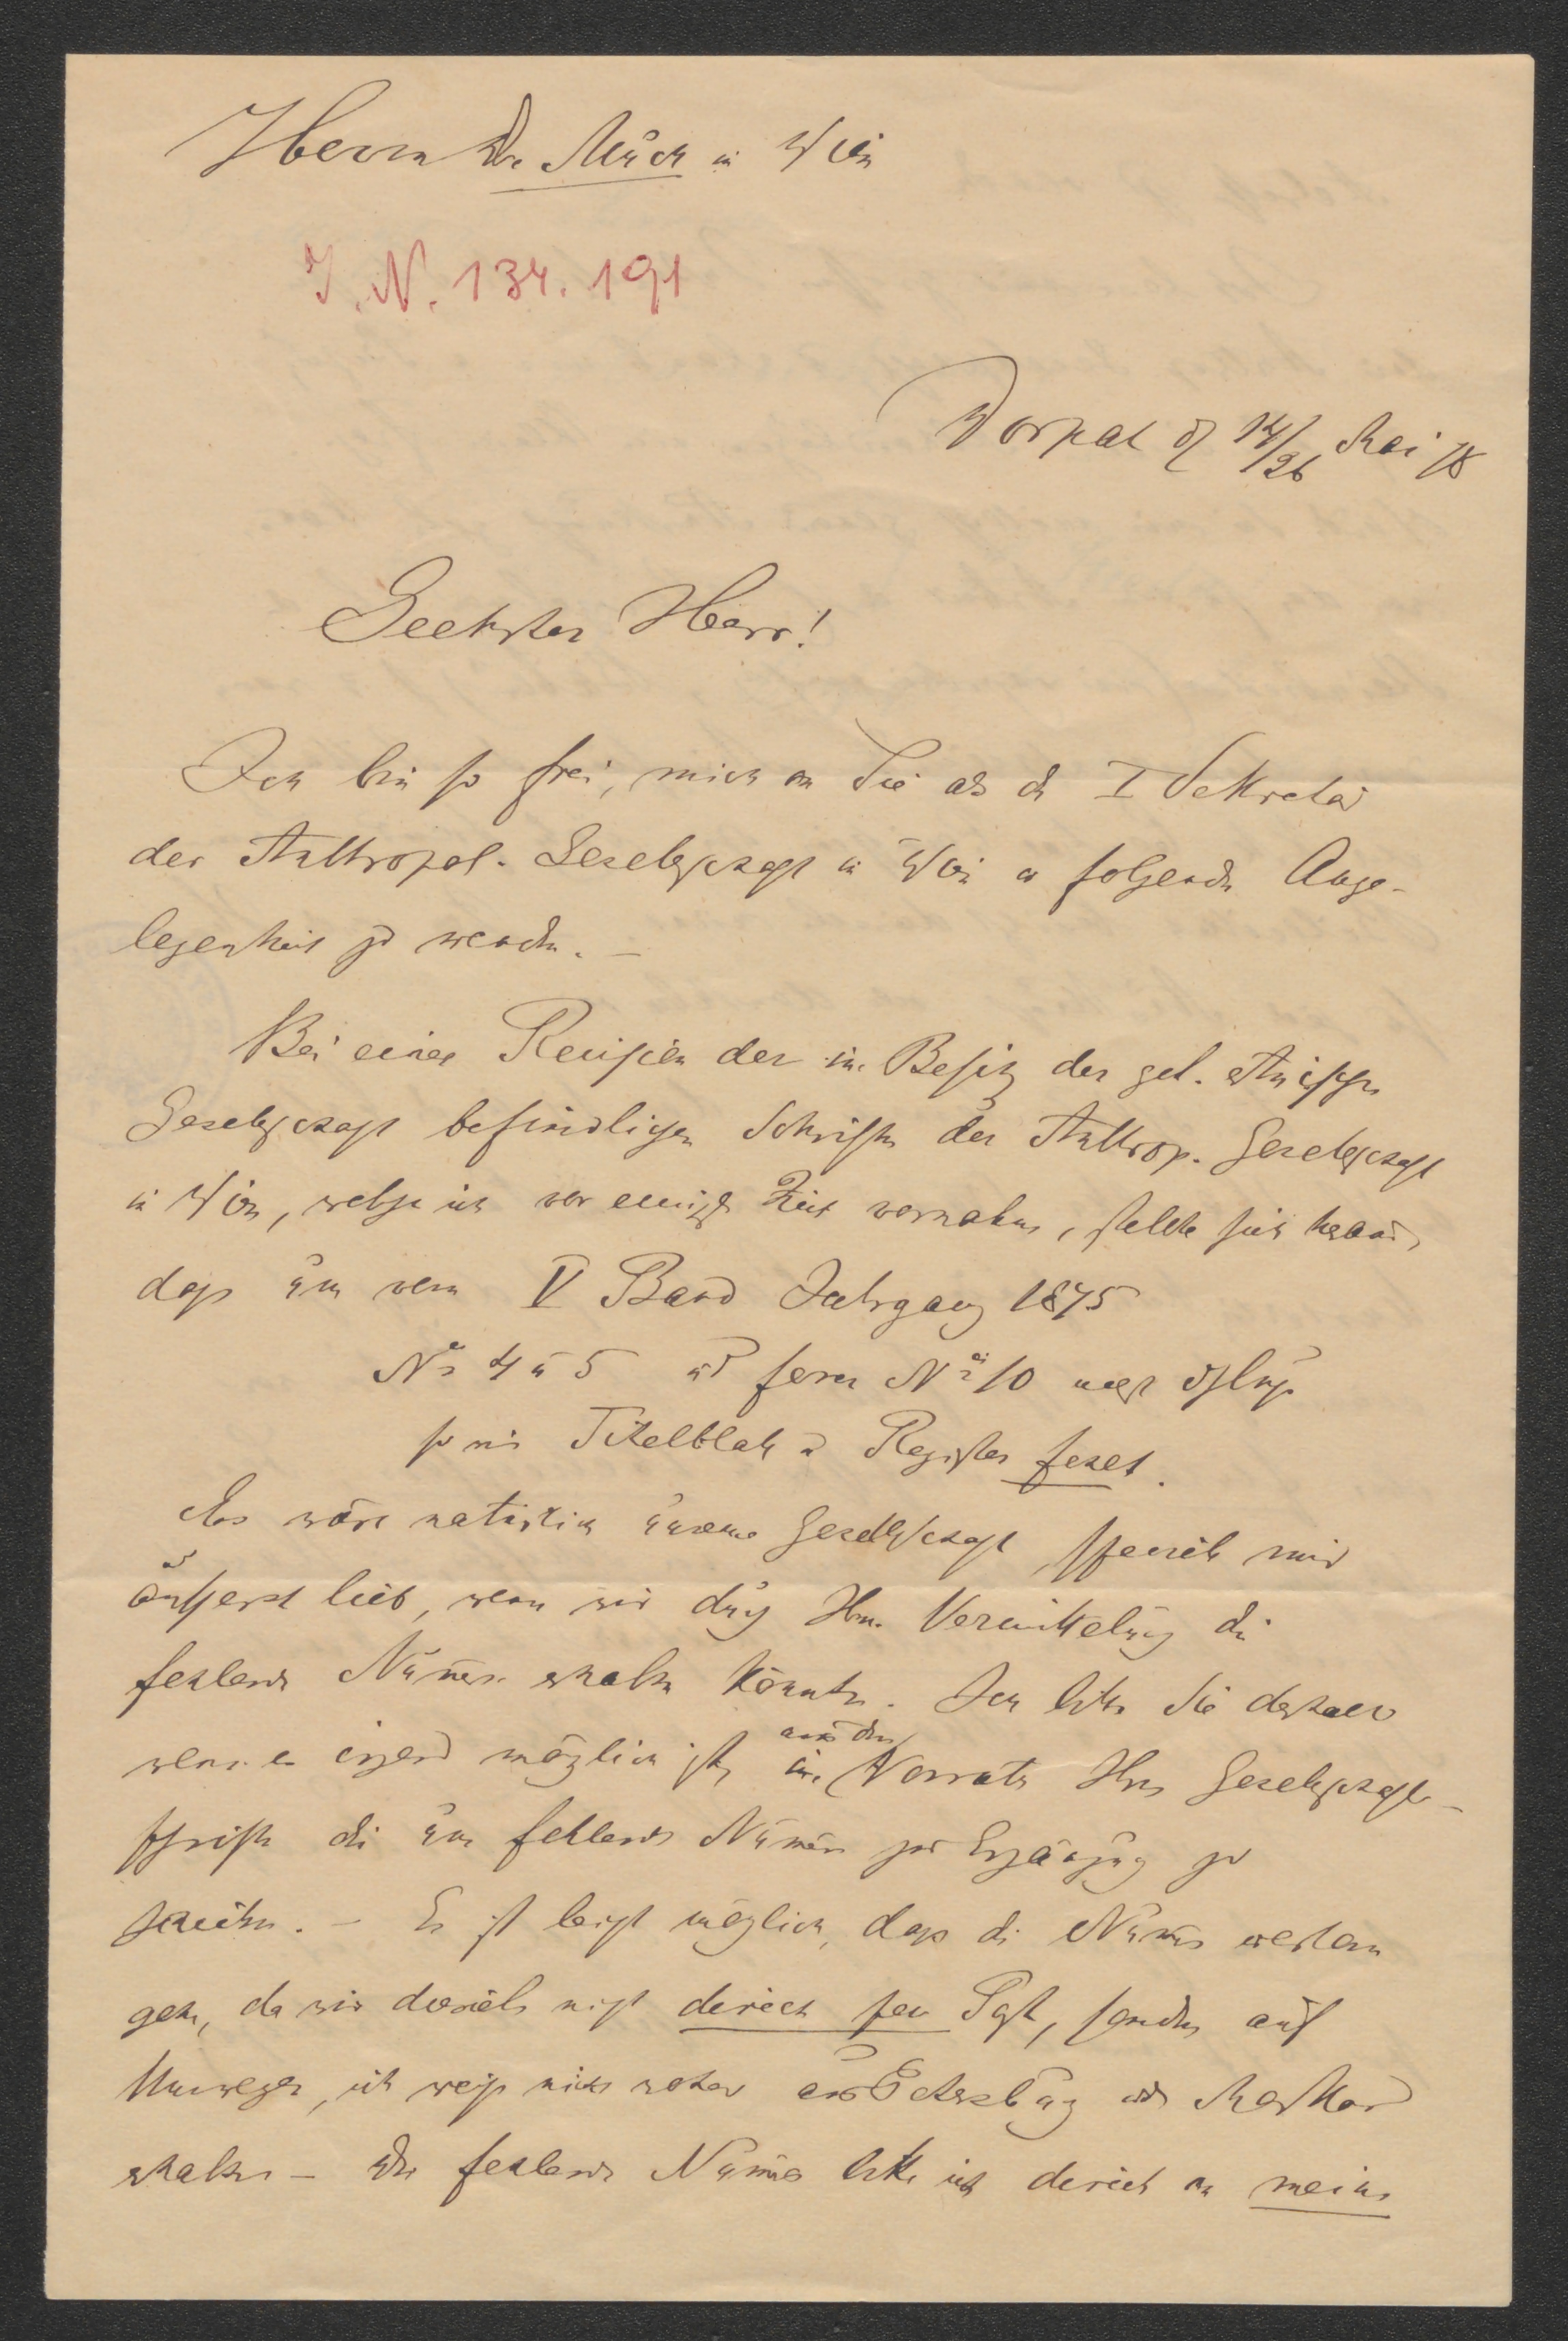 Herrn Dr. Much in Wien
I. N. 134.191
Dorpat d 14/26 Mai 78
Geehrter Herr!
Ich bin so frei, mich an Sie als d I Sekretär
der Anthropol. Gesellschaft in Wien in folgender Ange-
legenheit zu wenden. –
Bei einer Revision der im Besitz der gel. estnischen
Gesellschaft befindlichen Schriften der Anthrop. Gesellschaft
in Wien, welche ich vor einiger Zeit vornahm, stellte sich heraus,
dass uns vom V Band Jahrgang 1875
No 4 u 5 und ferner No 10 nebst Schluß
so wie Titelblatt u Register fehlt.
Es wäre natürlich unserer Gesellschaft speciell mir
äusserst lieb, wenn wir durch Ihre Vermittelung die
fehlenden Nummern erhalten könnten. Ich bitte Sie deshalb
wenn es irgend möglich ist, aus dem Vorrath Ihrer Gesellschafts-
schriften die uns fehlenden Nummern zur Ergänzung zu
. – Es ist leicht möglich, dass die Nummern verloren
gehen, da wir dieselben nicht direct per Post, sondern auf
Umwegen, ich weiss nicht woher aus Petersburg oder Moskau
erhalten – Die fehlenden Nummern bitte ich direct an meine